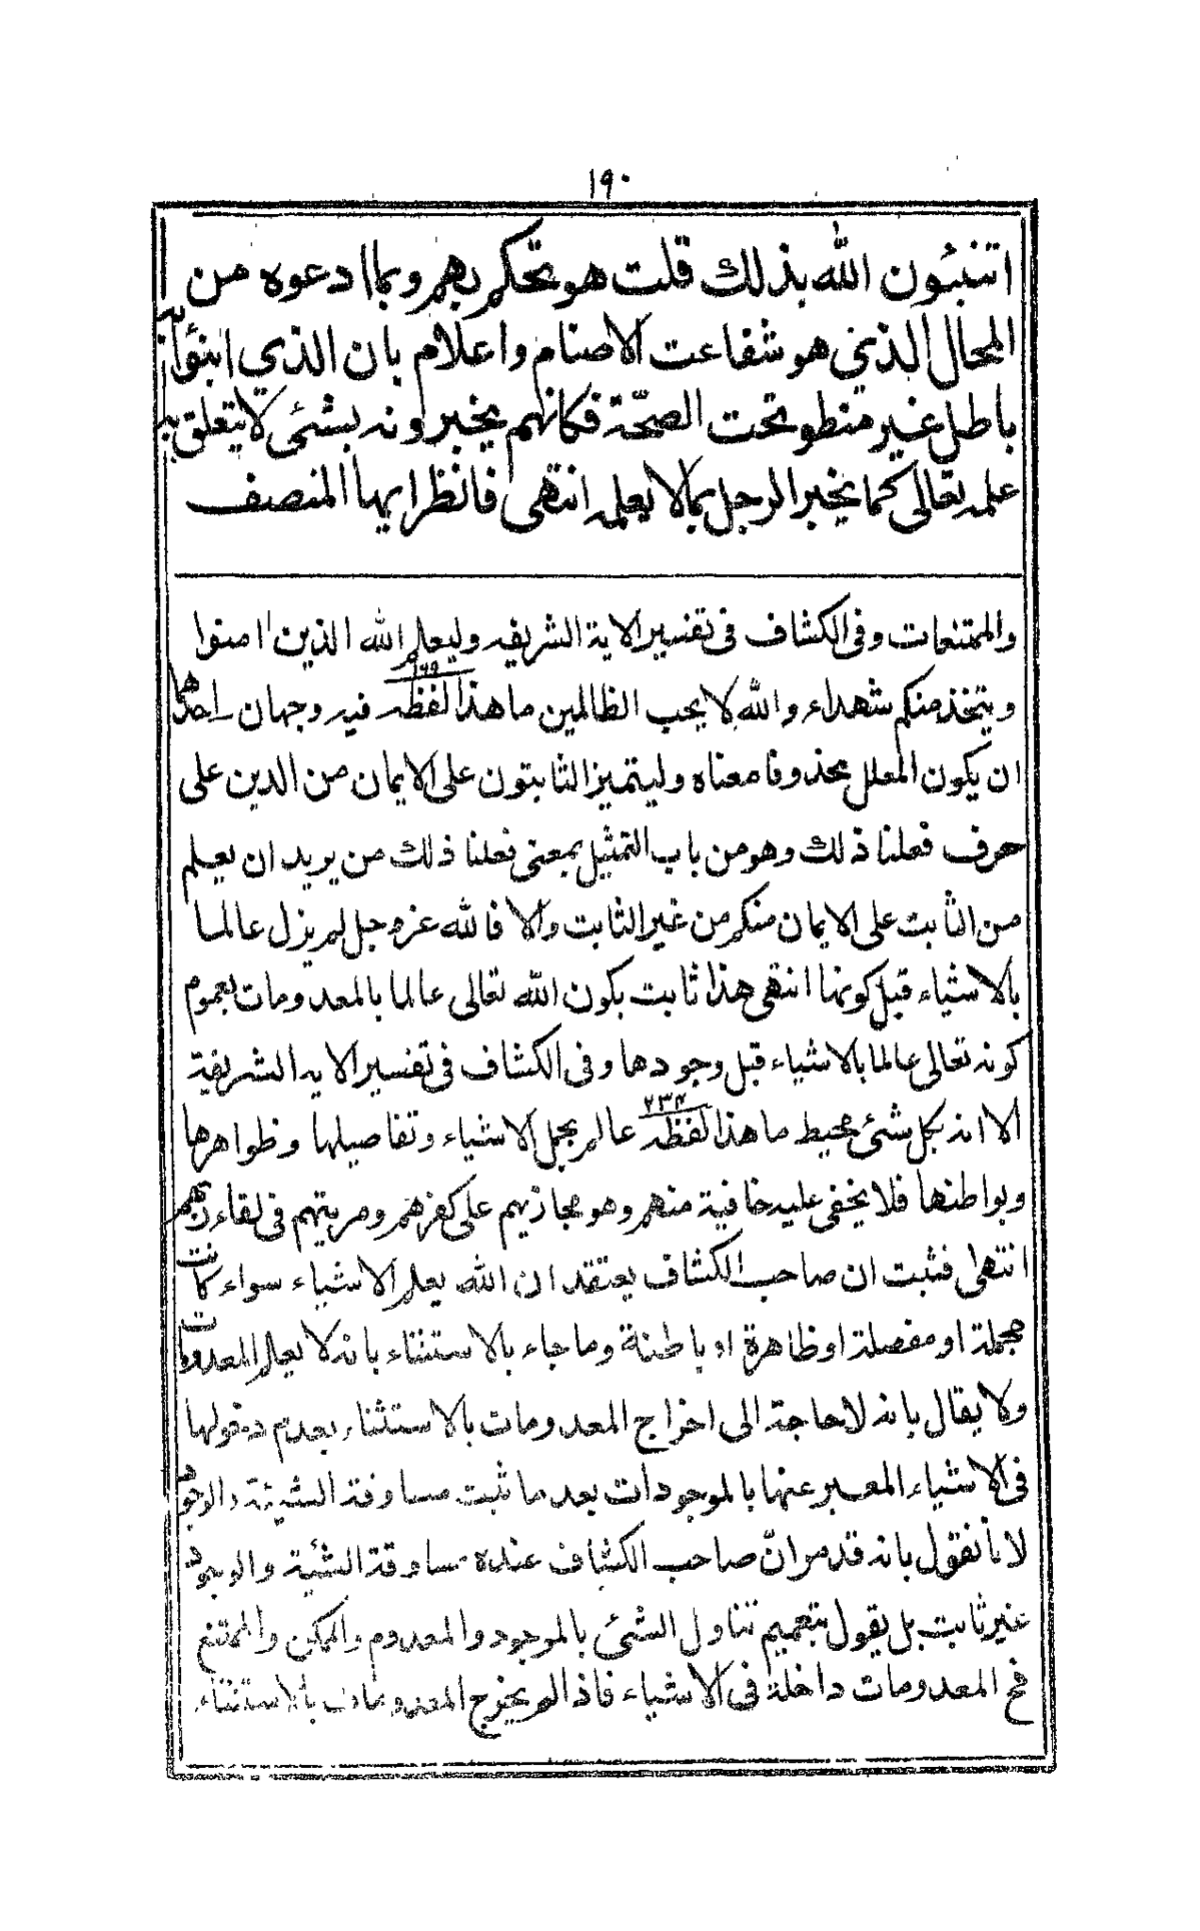 ١٩٠
اتنبئون الله بذلك قلت هو تحكم بهم وبما ادعوه من
المحال الذي هو شفاعت الاصنام واعلام بان الذي انبئوا
باطل غير منطو تحت الصحّة فكانهم يخبرونه بشئى لا يتعلق به
علمه تعالى كما يخبر الرجل بمالا يعلمه انتهى فانظر ايها المنصف
والممتنعات وفى الكشاف فى تفسير الاية الشريفه وليعلم الله الذين امنوا
ويتخذ منكم شهداء والله لا يحب الظالمين ما هذا لفظه فيه وجهان احدها
ان يكون المعلل محذوفا معناه وليتميز الثابتون على الايمان من الدين على
حرف فعلنا ذلك وهو من باب التمثيل بمعنى فعلنا ذلك من يريد ان يعلم
من الثابت على الايمان منكم من غير الثابت والا فالله عزوجل لم يزل عالما
بالاشياء قبل كونها انتهى هذا ثابت بكون الله تعالى عالما بالمعدومات بعموم
كونه تعالى عالما بالاشياء قبل وجودها وفى الكشاف فى تفسير الايه الشريفة
الا انه بكل شئ محيط ما هذا لفظه ٢٣٤ عالم بجمل الاشياء وتفاصيلها وظواهرها
وبواطنها فلا يخفى عليه خافية منهم وهو مجازيهم على كفرهم ومريتهم فى لقاء ربهم
انتهى فثبت ان صاحب الكشاف يعتقد ان الله يعلم الاشياء سواء كانت
مجملة او مفصلة او ظاهرة او باطنة وما جاء بالاستثناء بانه لا يعلم المعدومات
ولا يقال بانه لا حاجة الى اخراج المعدومات بالاستثناء بعدم دخولها
فى الاشياء المعبر عنها بالموجودات بعد ما ثبت مساوقة الشيئية والوجود
لانا نقول بانه قد مر انّ صاحب الكشاف عنده مساوقة الشيئية والوجود
غير ثابت بل يقول بتعميم تناول الشئى بالموجود والمعدوم والممكن والممتنع
فح المعدومات داخلة فى الاشياء فاذا لم يخرج المعدومات بالاستثناء